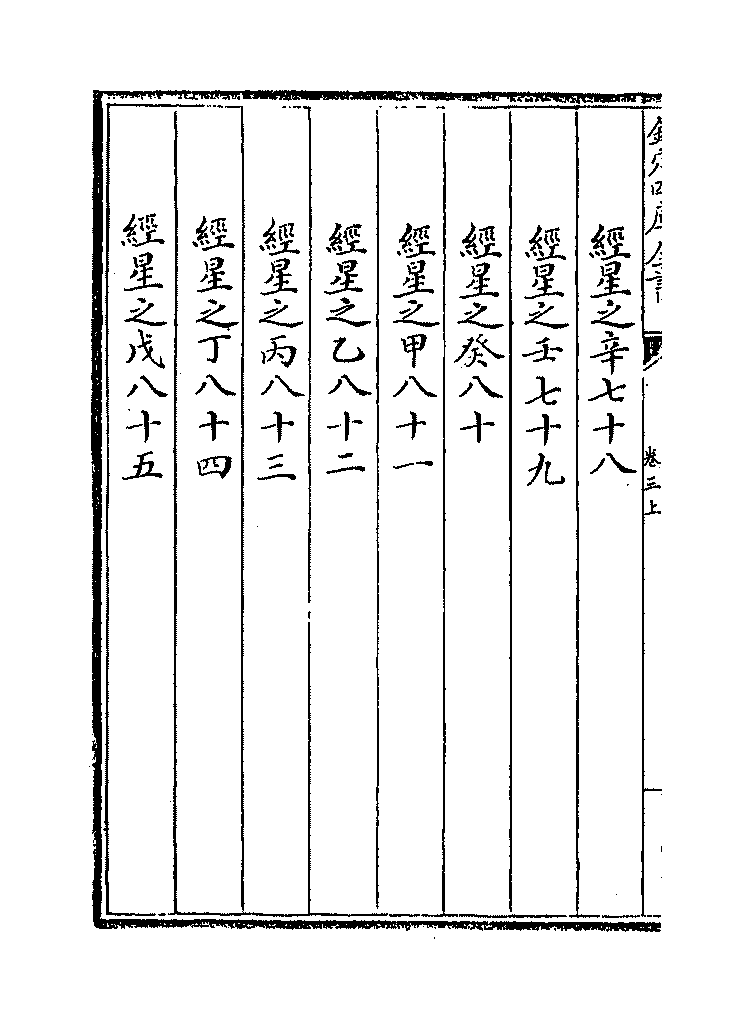 欽定四庫全書
卷三上
經星之辛七十八
經星之壬七十九
經星之癸八十
經星之甲八十一
經星之乙八十二
經星之丙八十三
經星之丁八十四
經星之戊八十五